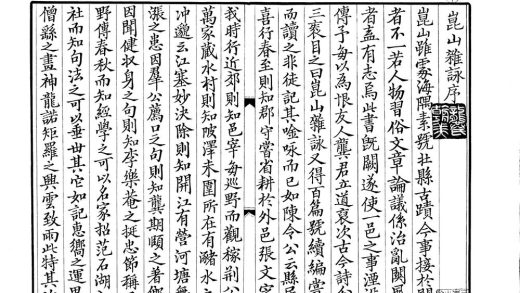 崑山雜詠序
崑山雖處海隅素號壯縣古蹟今事接於
者不一若人物習俗文章論議係治亂關風
者蓋有志焉此書既闕遂使一邑之事湮
傳予每以為恨友人龔君立道裒次古今詩
三袠目之曰崑山雜詠又得百篇號續編嘗
而讀之非徒記其唫咏而已如陳令公云縣民
喜行春至則知郡守嘗省耕於外邑張文
我時行近郊則知邑宰每巡野而觀稼荆公
萬家藏水村則知陂澤未圍所在有瀦水
冲邃云江塞妙決除則知開江有營河塘
漲之患因羣公薦口之句則知龔期頤之著
因聞健収身之句則知李樂菴之挺忠節稱
野傳春秋而知經學之可以名家招范石湖
社而知句法之可以垂世其它如記惠嚮之運
僧繇之畫神龍諾矩羅之興雲致雨此特其